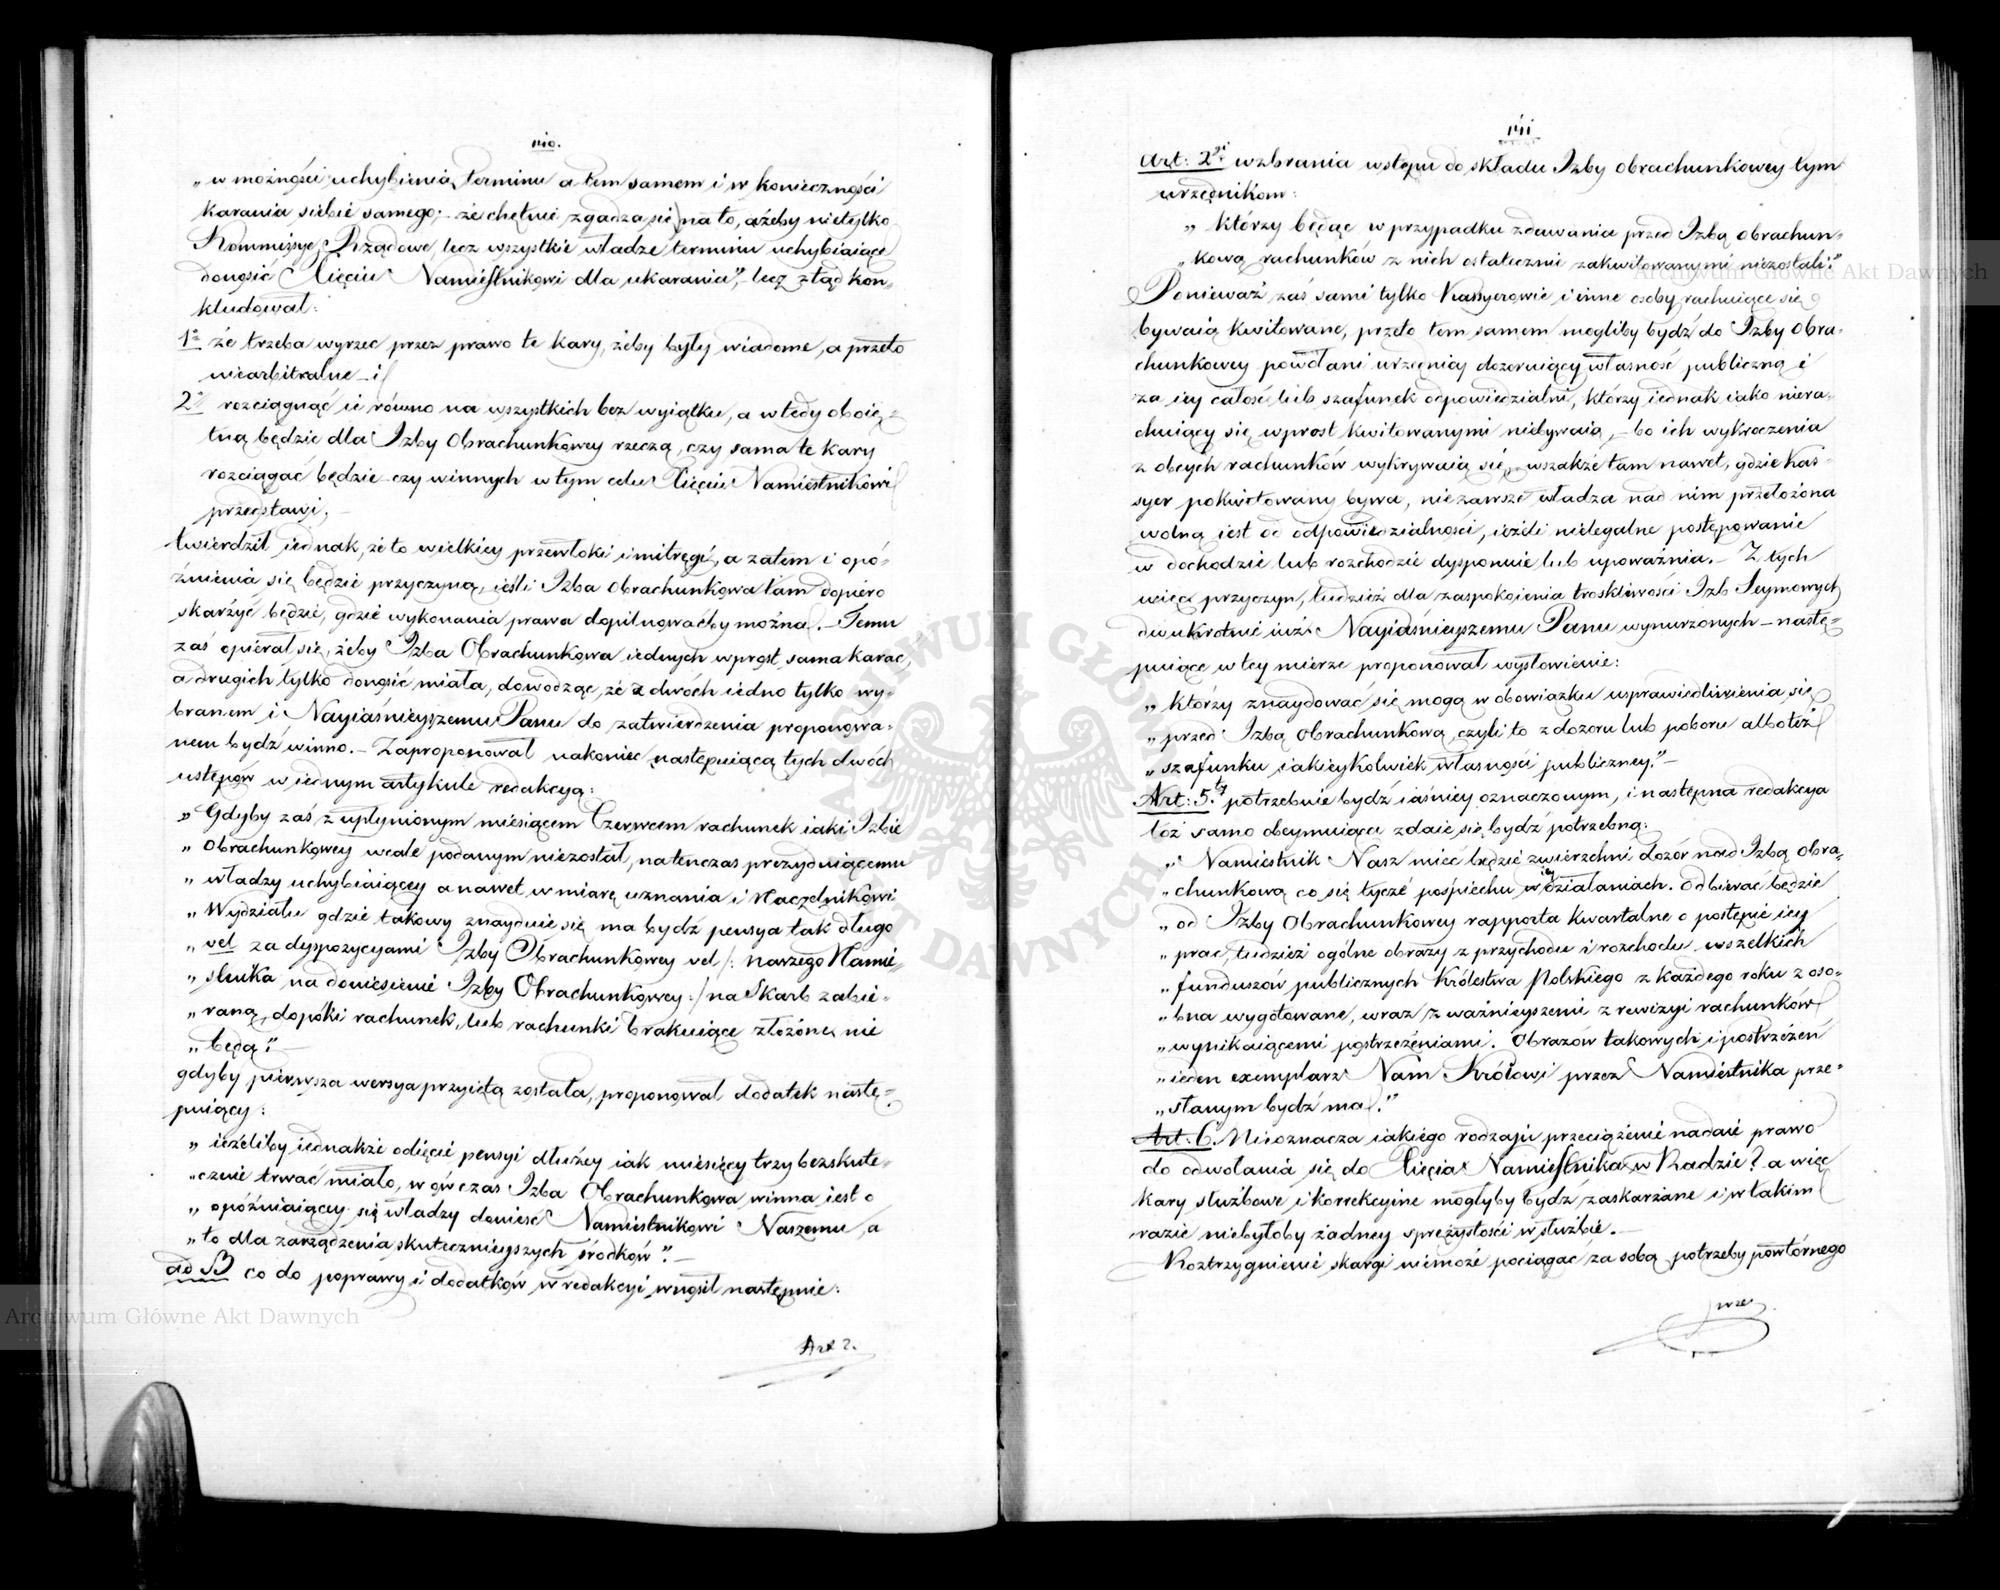 110.
„w możności uchybienia terminu a tem samem i w konieczności
karania siebie samego; – że chętnie zgadza się na to, ażeby nietylko
Kommissye Rządowe, lecz wszystkie władze terminu uchybiaiące
donosić Xięciu Namiestnikowi dla ukarania", – lecz ztąd kon-
kludował:
1o że trzeba wyrzec przez prawo te kary, żeby były wiadome, a przeto
niearbitralne – i
2o rozciągnąć ie równo na wszystkich bez wyiątku, a wtedy oboię-
tną będzie dla Izby Obrachunkowey rzeczą, czy sama te kary
rozciągać będzie – czy winnych w tym celu Xięciu Namiestnikowi
przedstawi; –
twierdził iednak, że to wielkiey przewłoki i mitręgi, a zatem i opó-
źnienia się będzie przyczyną, ieśli Izba Obrachunkowa tam dopiero
skarżyć będzie, gdzie wykonania prawa dopilnowaćby można. – Temu
zaś opierał się, żeby Izba Obrachunkowa iednych wprost sama karać,
a drugich tylko donosić miała, dowodząc, że z dwóch iedno tylko wy-
branem i Nayiaśnieyszemu Panu do zatwierdzenia proponowa-
nem bydź winno. – Zaproponował nakoniec następuiącą tych dwóch
ustępów w iednym artykule redakcyą:
„Gdyby zaś z upłynionym miesiącem Czerwcem rachunek iaki Izbie
„Obrachunkowey wcale podanym niezostał, natenczas prezyduiącemu
„władzy uchybiaiącey a nawet w miarę uznania i Naczelnikowi
„Wydziału gdzie takowy znayduie się, ma bydź pensya tak długo
„vel za dyspozycyami Izby Obrachunkowey vel /: naszego Namie-
„stnika na doniesienie Izby Obrachunkowey :/ na Skarb zabie-
„raną, dopóki rachunek, lub rachunki brakuiące złożone nie
„będą". –
gdyby pierwsza wersya przyiętą została, proponował dodatek nastę-
puiący:
„ieżeliby iednakże odięcie pensyi dłużey iak miesięcy trzy bezskute-
„cznie trwać miało, w ówczas Izba Obrachunkowa winna iest o
„opóźniaiącey się władzy donieść Namiestnikowi Naszemu, a
„to dla zarządzenia skutecznieyszych środków". –
ad B co do poprawy i dodatków w redakcyi wnosił następnie:
Art 2.
111
Art: 2gi wzbrania wstępu do składu Izby Obrachunkowey tym
urzędnikom:
„którzy będąc w przypadku zdawania przed Izbą Obrachun-
„kową rachunków z nich ostatecznie zakwitowanymi niezostali".
Ponieważ zaś sami tylko Kassyerowie i inne osoby rachuiące się
bywaią kwitowane, przeto tem samem mogliby bydź do Izby Obra-
chunkowey powołani urzędnicy dozoruiący własność publiczną i
za iey całość lub szafunek odpowiedzialni, którzy iednak iako niera-
chuiący się wprost kwitowanymi niebywaią, – bo ich wykroczenia
z obcych rachunków wykrywaią się, wszakże tam nawet, gdzie Kas-
syer pokwitowany bywa, niezawsze władza nad nim przełożona
wolną iest od odpowiedzialności, ieżeli nielegalne postępowanie
w dochodzie lub rozchodzie dysponuie lub upoważnia. – Z tych
więc przyczyn, tudzież dla zaspokoienia troskliwości Izb Seymowych
dwukrotnie iuż Nayiaśnieyszemu Panu wynurzonych – nastę-
puiące w tey mierze proponował wysłowienie:
„którzy znaydować się mogą w obowiązku usprawiedliwienia się
„przed Izbą Obrachunkową, czyli to z dozoru lub poboru albo też
„szafunku iakieykolwiek własności publiczney". –
Art: 5.ty potrzebuie bydź iaśniey oznaczonym, i następna redakcya
toż samo obeymuiąca zdaie się bydź potrzebną:
„Namiestnik Nasz mieć będzie zwierzchni dozór nad Izbą Obra-
„chunkową co się tycze pośpiechu w iey działaniach. Odbierać będzie
„od Izby Obrachunkowey rapporta kwartalne o postępie iey
„prac, tudzież ogólne obrazy z przychodu i rozchodu wszelkich
„funduszów publicznych Królestwa Polskiego z każdego roku z oso-
„bna wygotowane, wraz z ważnieyszemi z rewizyi rachunków
„wynikaiącemi postrzeżeniami. Obrazów takowych i postrzeżeń
„ieden exemplarz Nam Królowi przez Namiestnika prze-
„słanym bydź ma".
Art: 6. Nieoznacza iakiego rodzaiu przeciążenie nadaie prawo
do odwołania się do Xięcia Namiestnika w Radzie? a więc
kary służbowe i korrekcyine mogłyby bydź zaskarżane i w takim
razie niebyłoby żadney sprężystości w służbie. –
Roztrzygnienie skargi niemoże pociągać za sobą potrzeby powtórnego
prze
Archiwum Główne Akt Dawnych
Archiwum Główne Akt Dawnych
ARCHIWUM GŁÓWNE AKT DAWNYCH